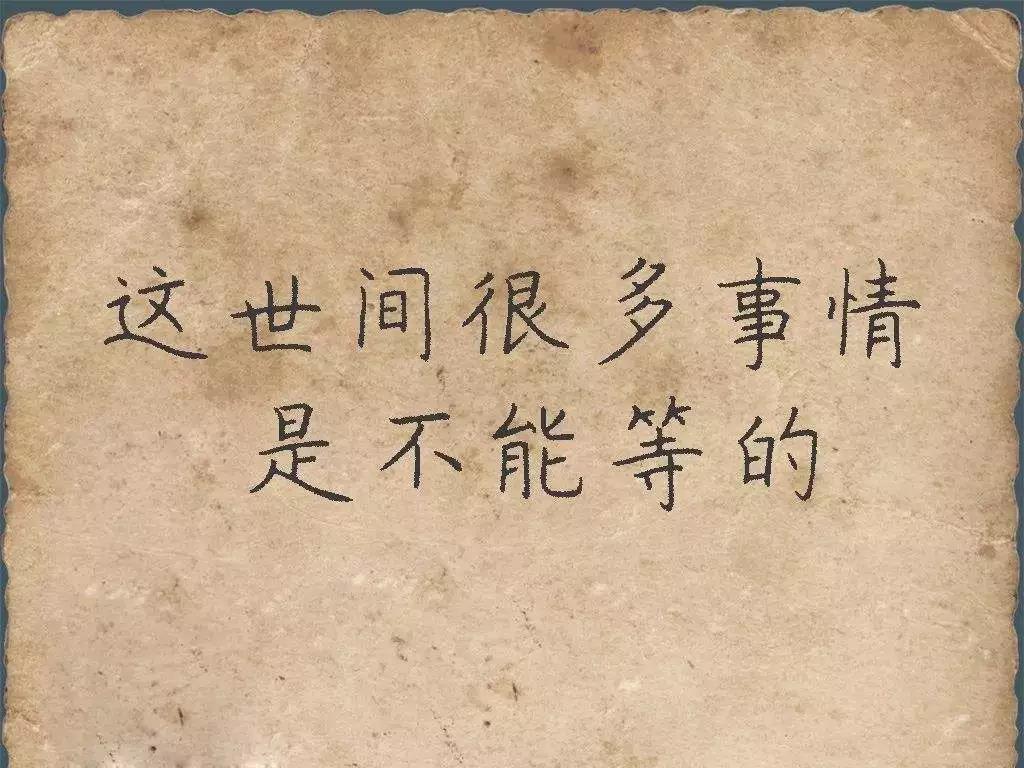 这世间很多事情
是不能等的